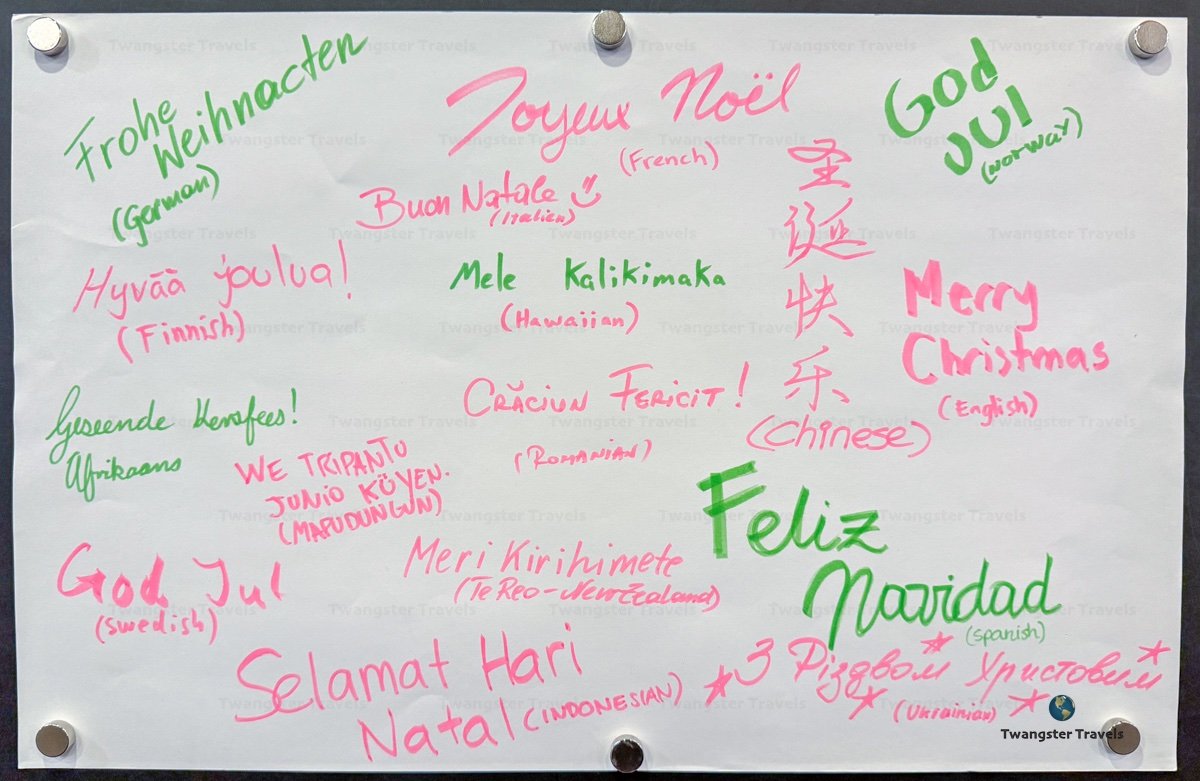 Frohe
Weihnacten
(German)
Joyeux Noël
(French)
God
Jul
(Norway)
Buon Natale
(Italien)
圣
诞
快
乐
(Chinese)
Hyvää joulua!
(Finnish)
Mele Kalikimaka
(Hawaiian)
Merry
Christmas
(English)
Geseende Kersfees!
Afrikaans
CRĂCIUN FERICIT!
(ROMANIAN)
WE TRIPANTU
JUNIO KÜYEN.
(MAPUDUNGUN)
Feliz
Navidad
(Spanish)
God Jul
(Swedish)
Meri Kirihimete
(Te Reo - New Zealand)
Selamat Hari
Natal (INDONESIAN)
З Різдвом Христовим
(Ukrainian)
Twangster Travels